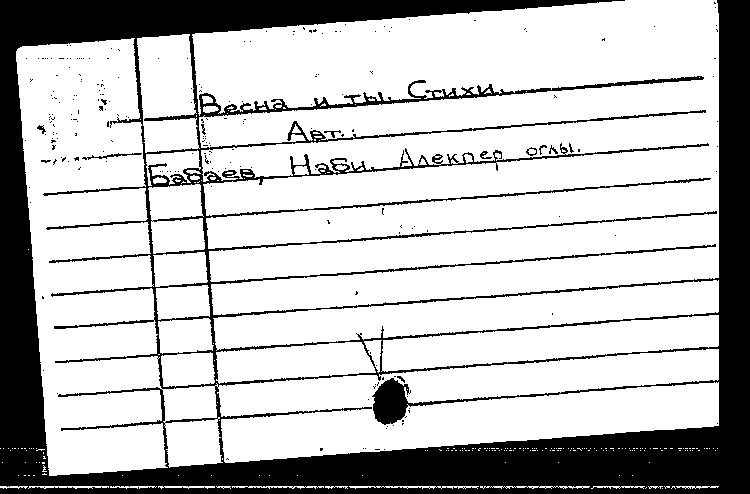 Весна и ты. Стихи.
Авт.:
Бабаев, Наби. Алекпер оглы.